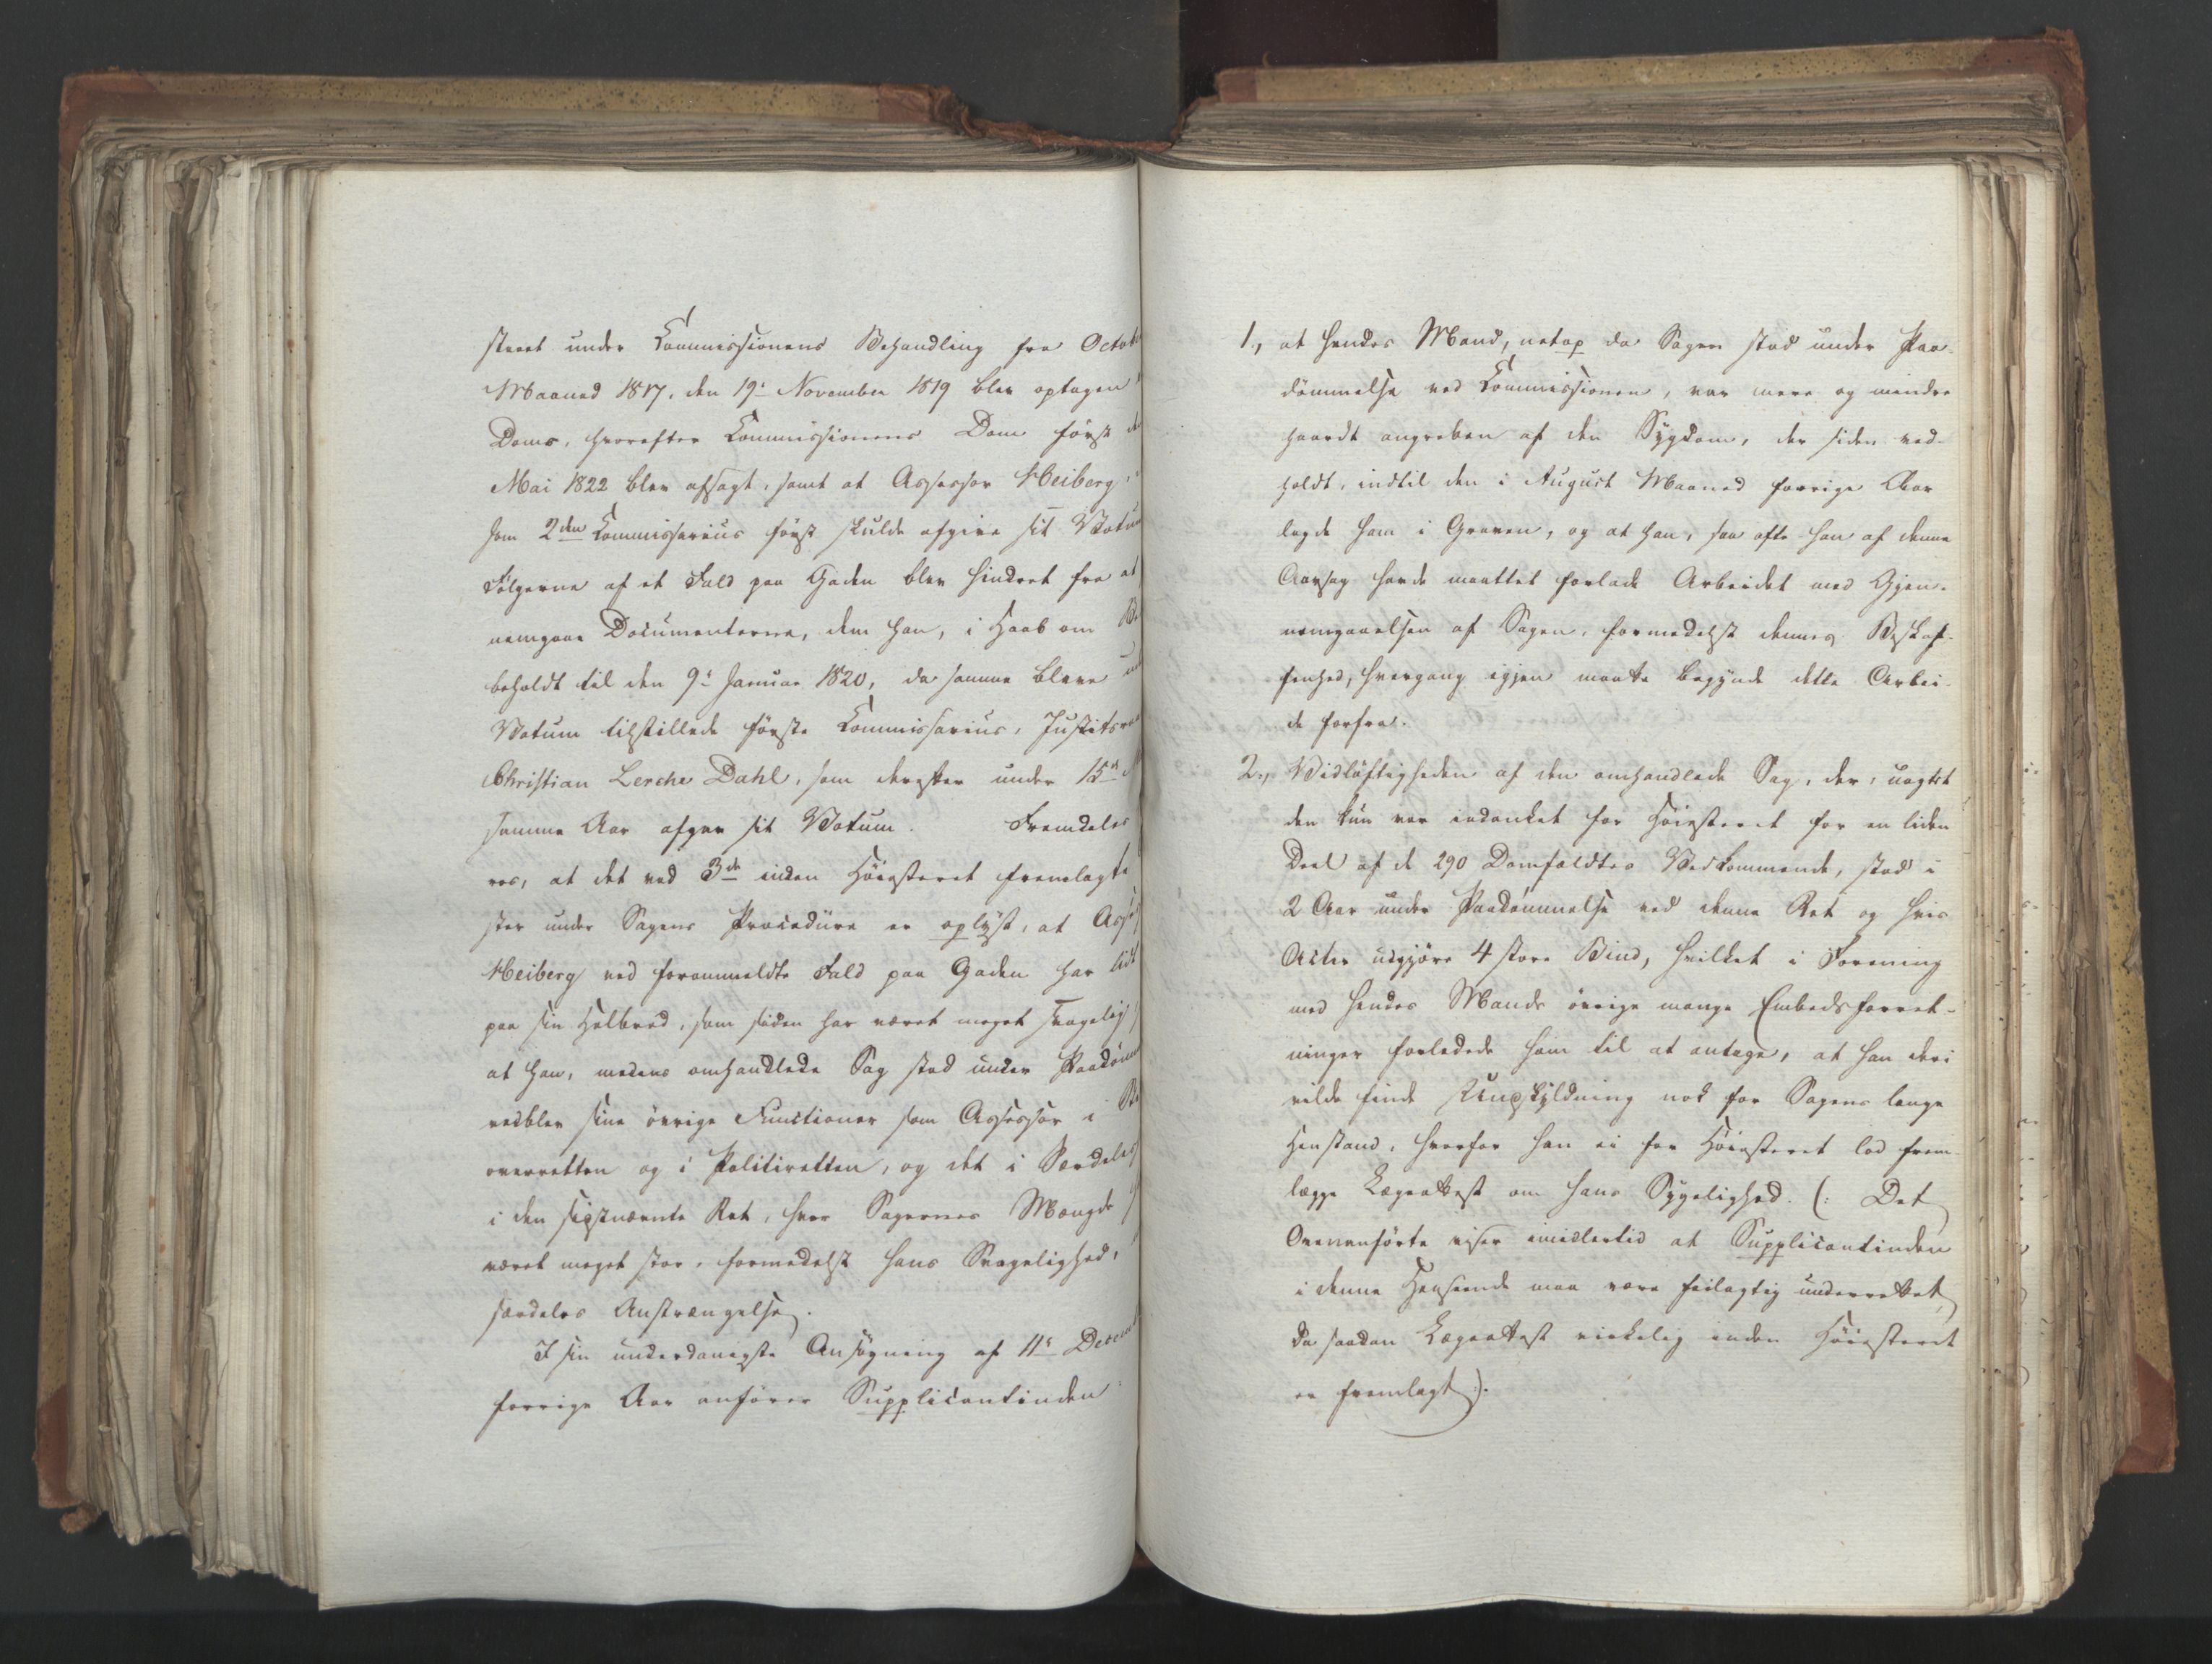 staaet under Commissionens Behandling fra Octob
Maaned 1817, den 19de November 1819 blev optagen
Doms, hvorefter Commissionens Dom først
Mai 1822 blev afsagt, samt at Assessor Heiberg,
som 2den Commissarius først skulde afgive sit Votum
Følgerne af et Fald paa Gaden blev hindret fra at
nemgaae Documenterne, dem han, i Haab om
beholdt til den 9de Januar 1820, da samme bleve
Votum tilstillede første Commissarius, Justitsra
Christian Lerche Dahl, som derefter under 15de
samme Aar afgav sit Votum. Fremdeles
res, at det ved 3de inden Høiesteret fremlagte
ster under Sagens Procedure er oplyst, at Asses
Heiberg ved forommeldte Fald paa Gaden har lidt
paa sin Helbred, som siden har været meget svagelig
at han, medens omhandlede Sag stod under Paadøm
vedblev sine øvrige Functioner som Assessor i
overretten og i Politiretten, og det i Særdeles
i den sidstnævnte Ret, hvor Sagernes Mængde
været meget stor, formedelst hans Svagelighed,
særdeles Anstrængelse.
I sin underdanigste Ansøgning af 11te Decem
forrige Aar anfører Supplicantinden:
1., at hendes Mand, netop da Sagen stod under Paa-
dømmelse ved Commissionen, var mere og mindre
haardt angreben af den Sygdom, der siden ved-
holdt, indtil den i August Maaned forrige Aar
lagde ham i Graven, og at han, saa ofte han af denne
Aarsag havde maattet forlade Arbeidet med Gjen-
nemgaaelsen af Sagen, formedelst dennes Beskaf-
fenhed, hvergang igjen maatte begynde dette Arbei-
de forfra.
2., Vidløftigheden af den omhandlede Sag, der, uagtet
den kun var indanket for Høiesteret for en liden
Deel af de 290 Domfældtes Vedkommende, stod i
2 Aar under Paadømmelse ved denne Ret og hvis
Acter udgjøre 4 store Bind, hvilket i Forening
med hendes Mands øvrige mange Embedsforret-
ninger forledede ham til at antage, at han deri
vilde finde Undskyldning nok for Sagens lange
Henstand, hvorfor han ei for Høiesteret lod frem-
lægge Lægeattest om hans Sygelighed. (: Det
Ovenanførte viser imidlertid at Supplicantinden
i denne Henseende maa være feilagtig underrettet,
da saadan Lægeattest virkelig inden Høiesteret
er fremlagt :).